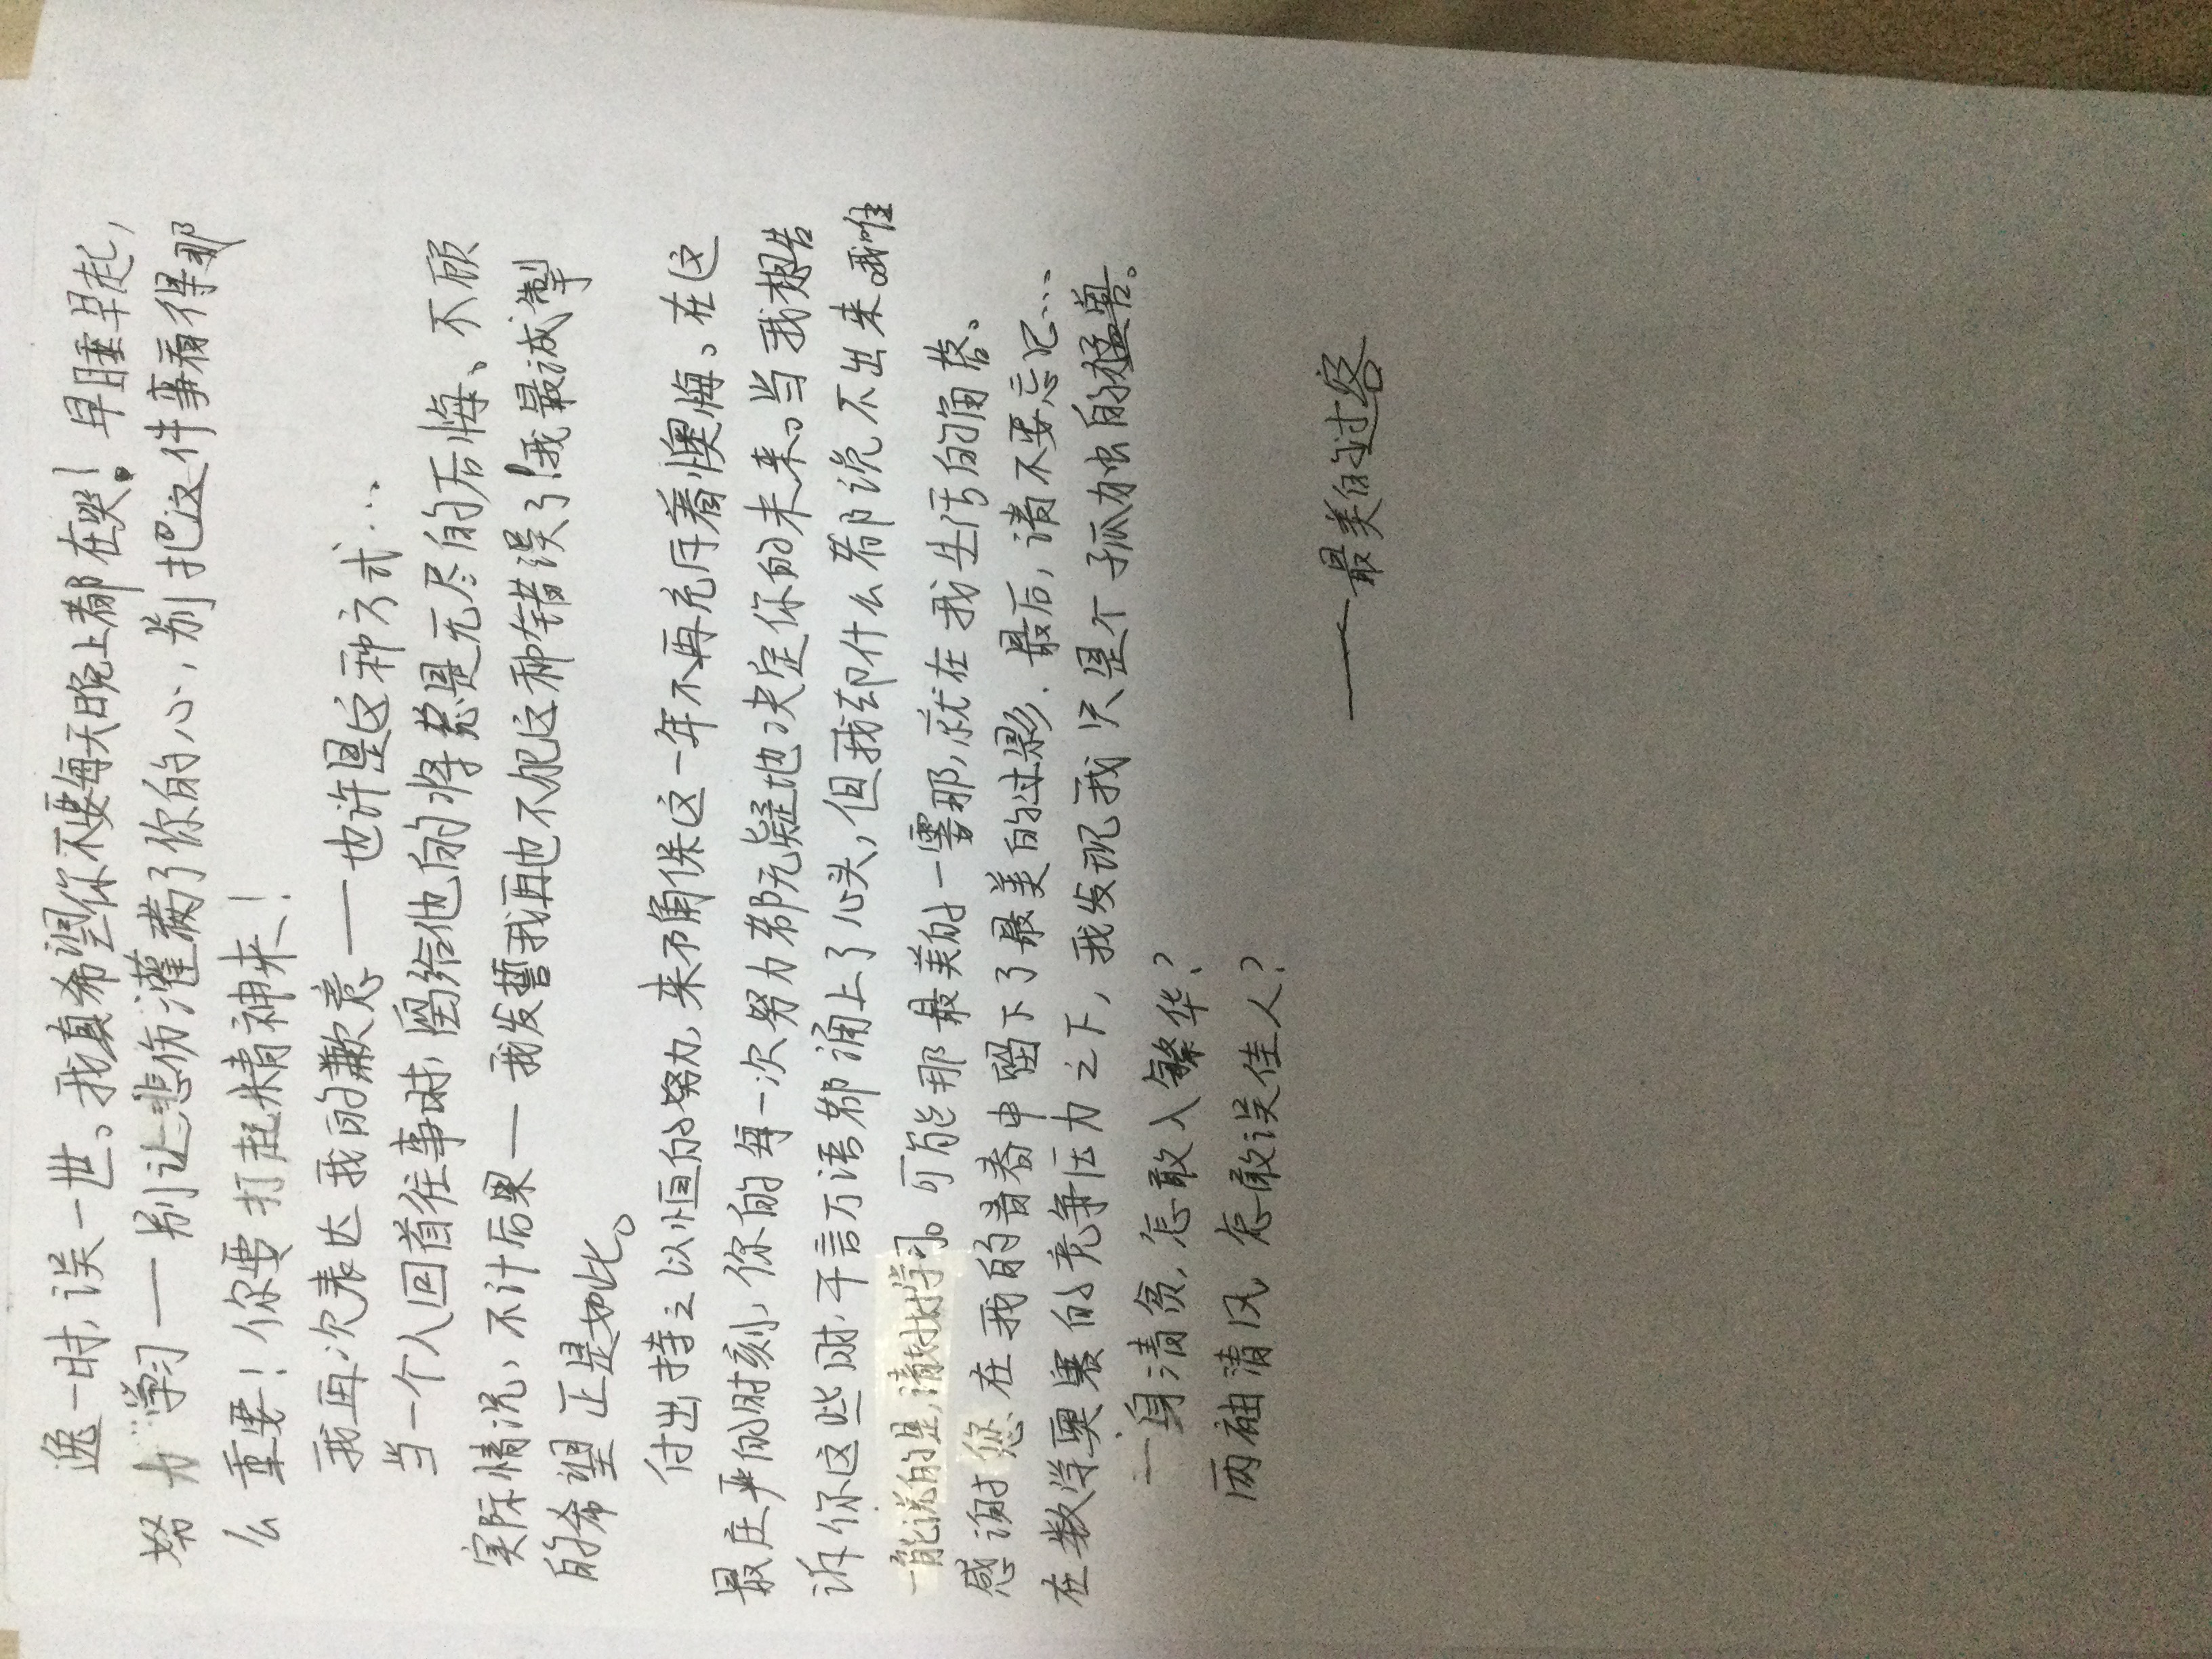 逸一时，误一世。我真希望你不要每天晚上都在哭！早睡早起，
努力学习——别让悲伤灌满了你的心，别把这件事看得那
么重要！你要打起精神来！
我再次表达我的歉意——也许是这种方式…
当一个人回首往事时，留给他的将总是无尽的后悔。不顾
实际情况，不计后果——我发誓我再也不犯这种错误了！我最诚挚
的希望正是如此。
付出持之以恒的努力，来确保这一年不再充斥着懊悔。在这
最庄严的时刻，你的每一次努力都无疑地决定你的未来。当我想告
诉你这些时，千言万语都涌上了心头，但我却什么都说不出来。我唯
一能说的是，请好好学习。可能那最美的一霎那，就在我生活的角落。
感谢您在我的青春中留下了最美的过影．最后，请不要忘记…
在数学奥赛的竞争压力之下，我发现我只是个孤独的猛兽。
一身清贫，怎敢入繁华？
两袖清风，怎敢误佳人？
——最美的过客